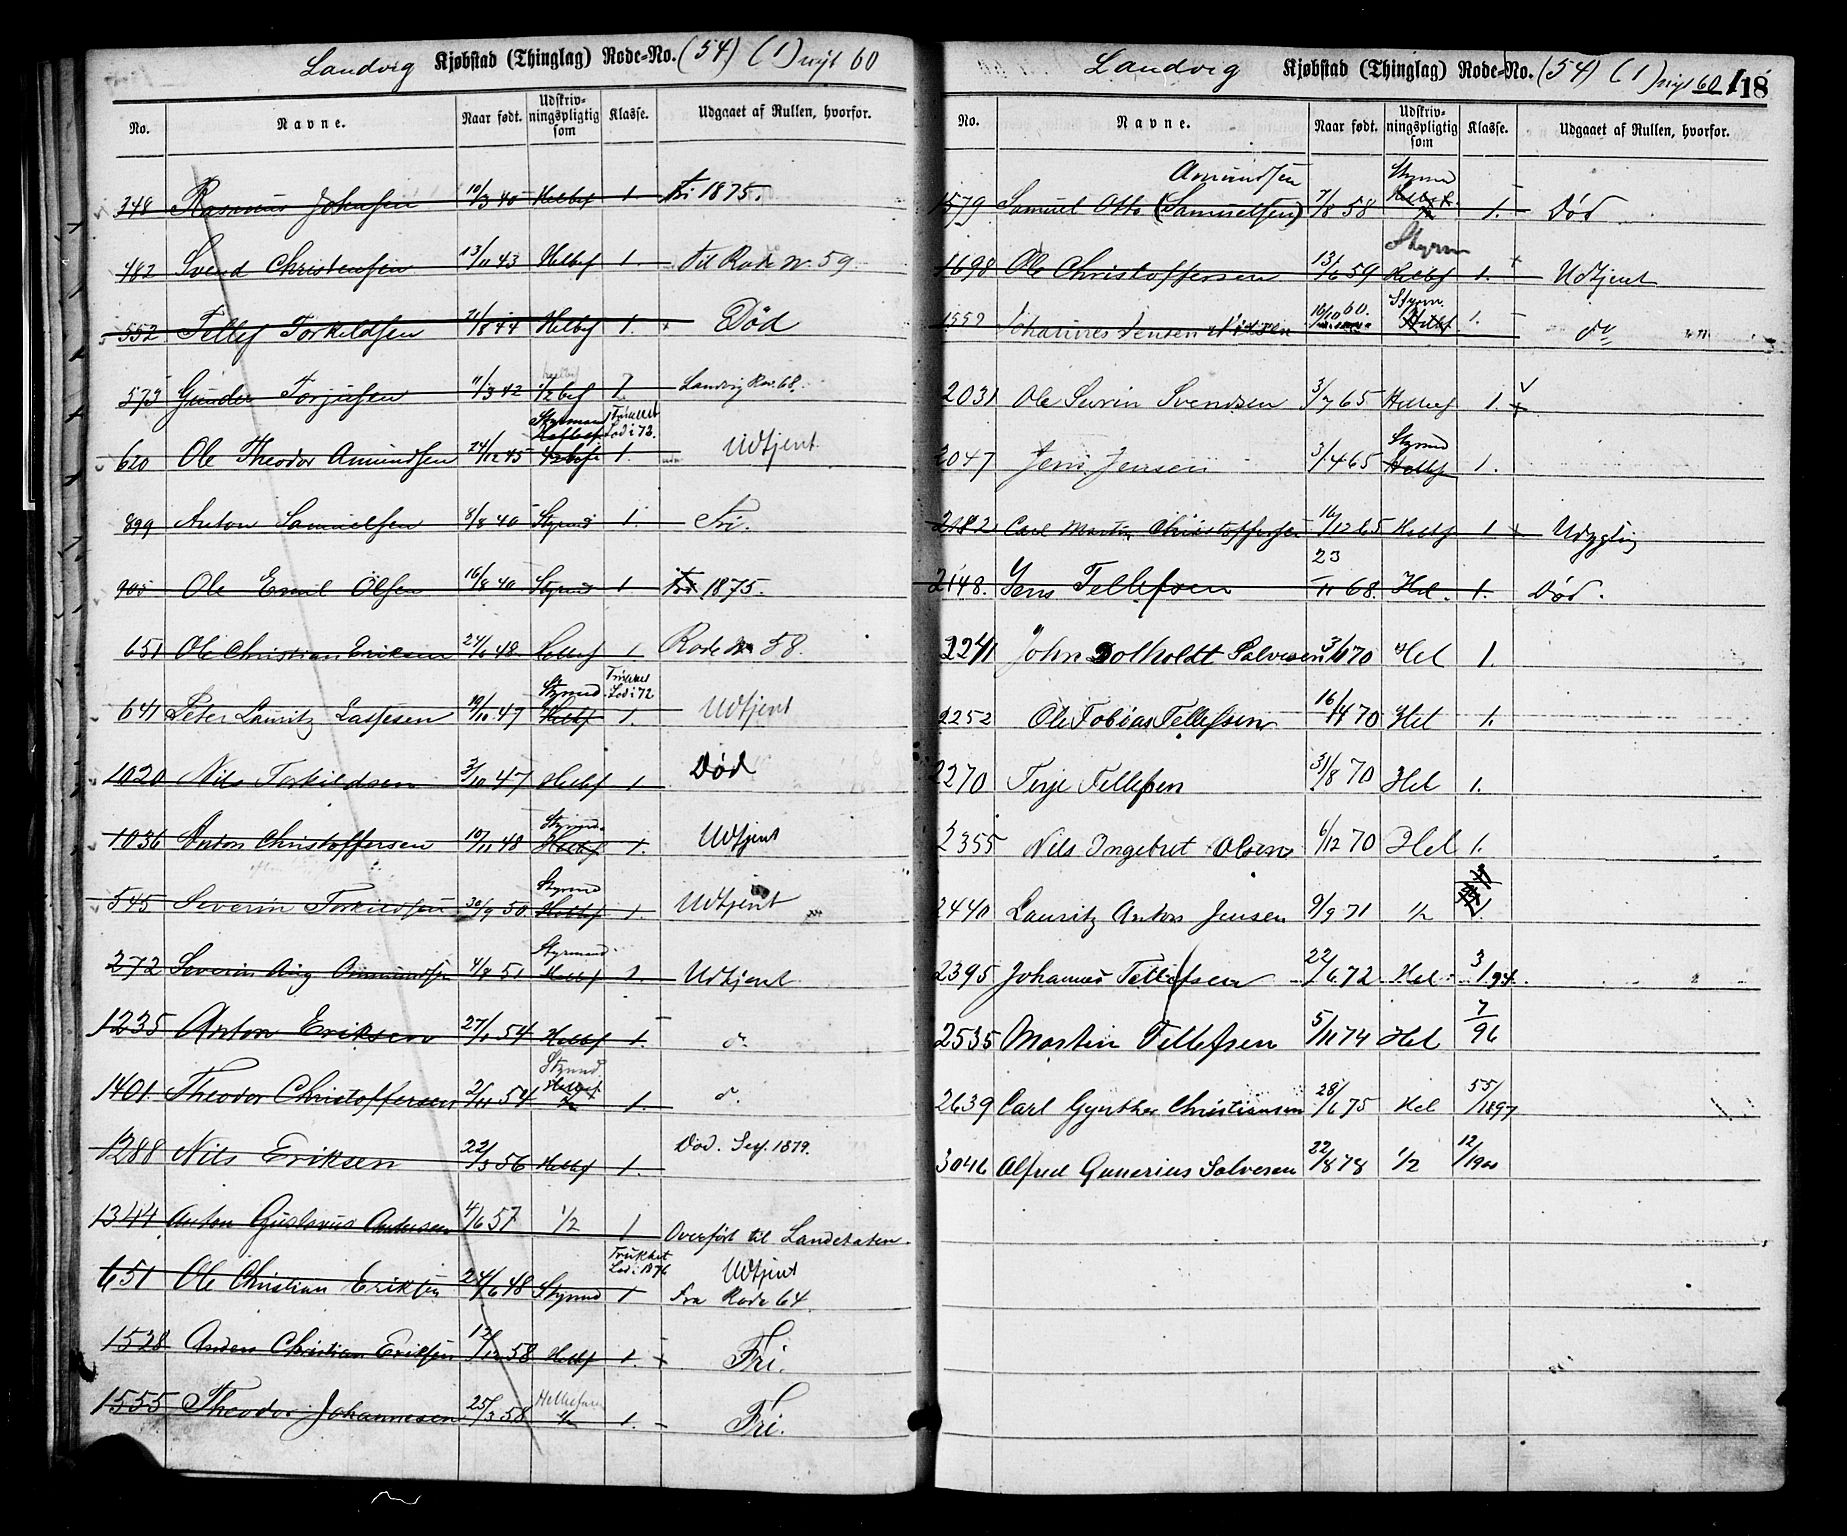 Landvig Kjøbstad (Thinglag) Rode-No. (54) (1) nyt 60
No. Navne. Naar født. Udskriv-ningspligtig som Klasse. Udgaaet af Rullen, hvorfor.
248 Rasmus Johnsen 10/3 40 Helbef 1. Fri 1875.
482 Svend Christensen 13/11 43 Helbef 1 til Rode No. 59
552 Tellef Torkildsen 21/8 44 Helbef 1. Død
573 Gunder Torjusen 11/3 42 1/2 bef 1. Landvig Rod. 68.
Styrmand Trukket
Helbef Lod i 72.
620 Ole Theodor Amundsen 24/12 45 1/2 bef 1. Udtjent
899 Anton Samuelsen 8/8 40 Styrmd 1. Fri.
905 Ole Emil Olsen 16/8 40 Styrmd 1 Fri 1875.
651 Ole Christian Eriksen 24/6 48 Helbef 1 Rode No 58.
Styrmd Trukket Lod i 72
641 Peter Lauritz Lassesen 19/10 47 Helbef 1. Udtjent
1020 Nils Torkildsen 3/10 47 Helbef 1 Død
Styrmd.
1036 Anton Christoffersen 10/11 48 Helbef 1. Udtjent
Styrmd
545 Severin Torkildsen 30/9 50 Helbef 1 Udtjent
Styrmand
272 Severin Aug Amundsen 4/8 51 Helbef 1. Udtjent
1235 Anton Eriksen 27/1 54 Helbef 1. do.
Styrmd.
Helbef
1401. Theodor Christoffersen 2/11 54 1/2 1. do.
1288 Nils Eriksen 22/3 56 Helbef 1. Død. Sep. 1879.
1344 Anton Gustavus Andersen 4/6 57 1/2 1 Overført til Landetaten.
Trukket Lod i 1876 Udtjent
651 Ole Christian Eriksen 24/6 48 Styrmd 1 Fra Rode 64.
1528 Anders Christian Eriksen 12/12 58 Helbef 1. Fri.
1555 Theodor Johannesen 25/3 58 1/2 1. Fri.
Landvig Kjøbstad (Thinglag) Rode-No. (54) (1) nyt 60 118
No. Navne. Naar født. Udskriv-ningspligtig som Klasse. Udgaaet af Rullen, hvorfor.
Amundsen Styrmd
1579 Samuel Otto (Samuelsen) 7/8 58 Helbef. 1. Død
Styrm
1698 Ole Christoffersen 13/6 59 Helbef 1. Udtjent
Styrm.
1552 Johannes Jensen 16/10 60. Helbf 1. do
2031 Ole Severin Svendsen 3/7 65 Helbef 1.
Styrmd
2047 Jens Jensen 3/4 65 Helbef 1.
2182 Carl Martin Christoffersen 16/12 65 Helbf 1 Udygtig
2148. Jens Tellefsen 23/11 68. Hel. 1. Død.
2241 John Dolholdt Salvesen 3/1 70 Hel 1.
2252 Ole Tobias Tellefsen 16/4 70 Hel 1.
2270 Terje Tellefsen 31/8 70 Hel 1.
2355 Nils Ingebret Olsen 6/12 70 Hel 1.
2440 Lauritz Anton Jensen 9/9 71 1/2
2395 Johannes Tellefsen 22/6 72 Hel 3/94.
2535 Martin Tellefsen 5/11 74 Hel 7/96
2639 Carl Gynther Christiansen 28/6 75 Hel 55/1897
3046 Alfred Gunerius Salvesen 22/8 78 1/2 12/1900